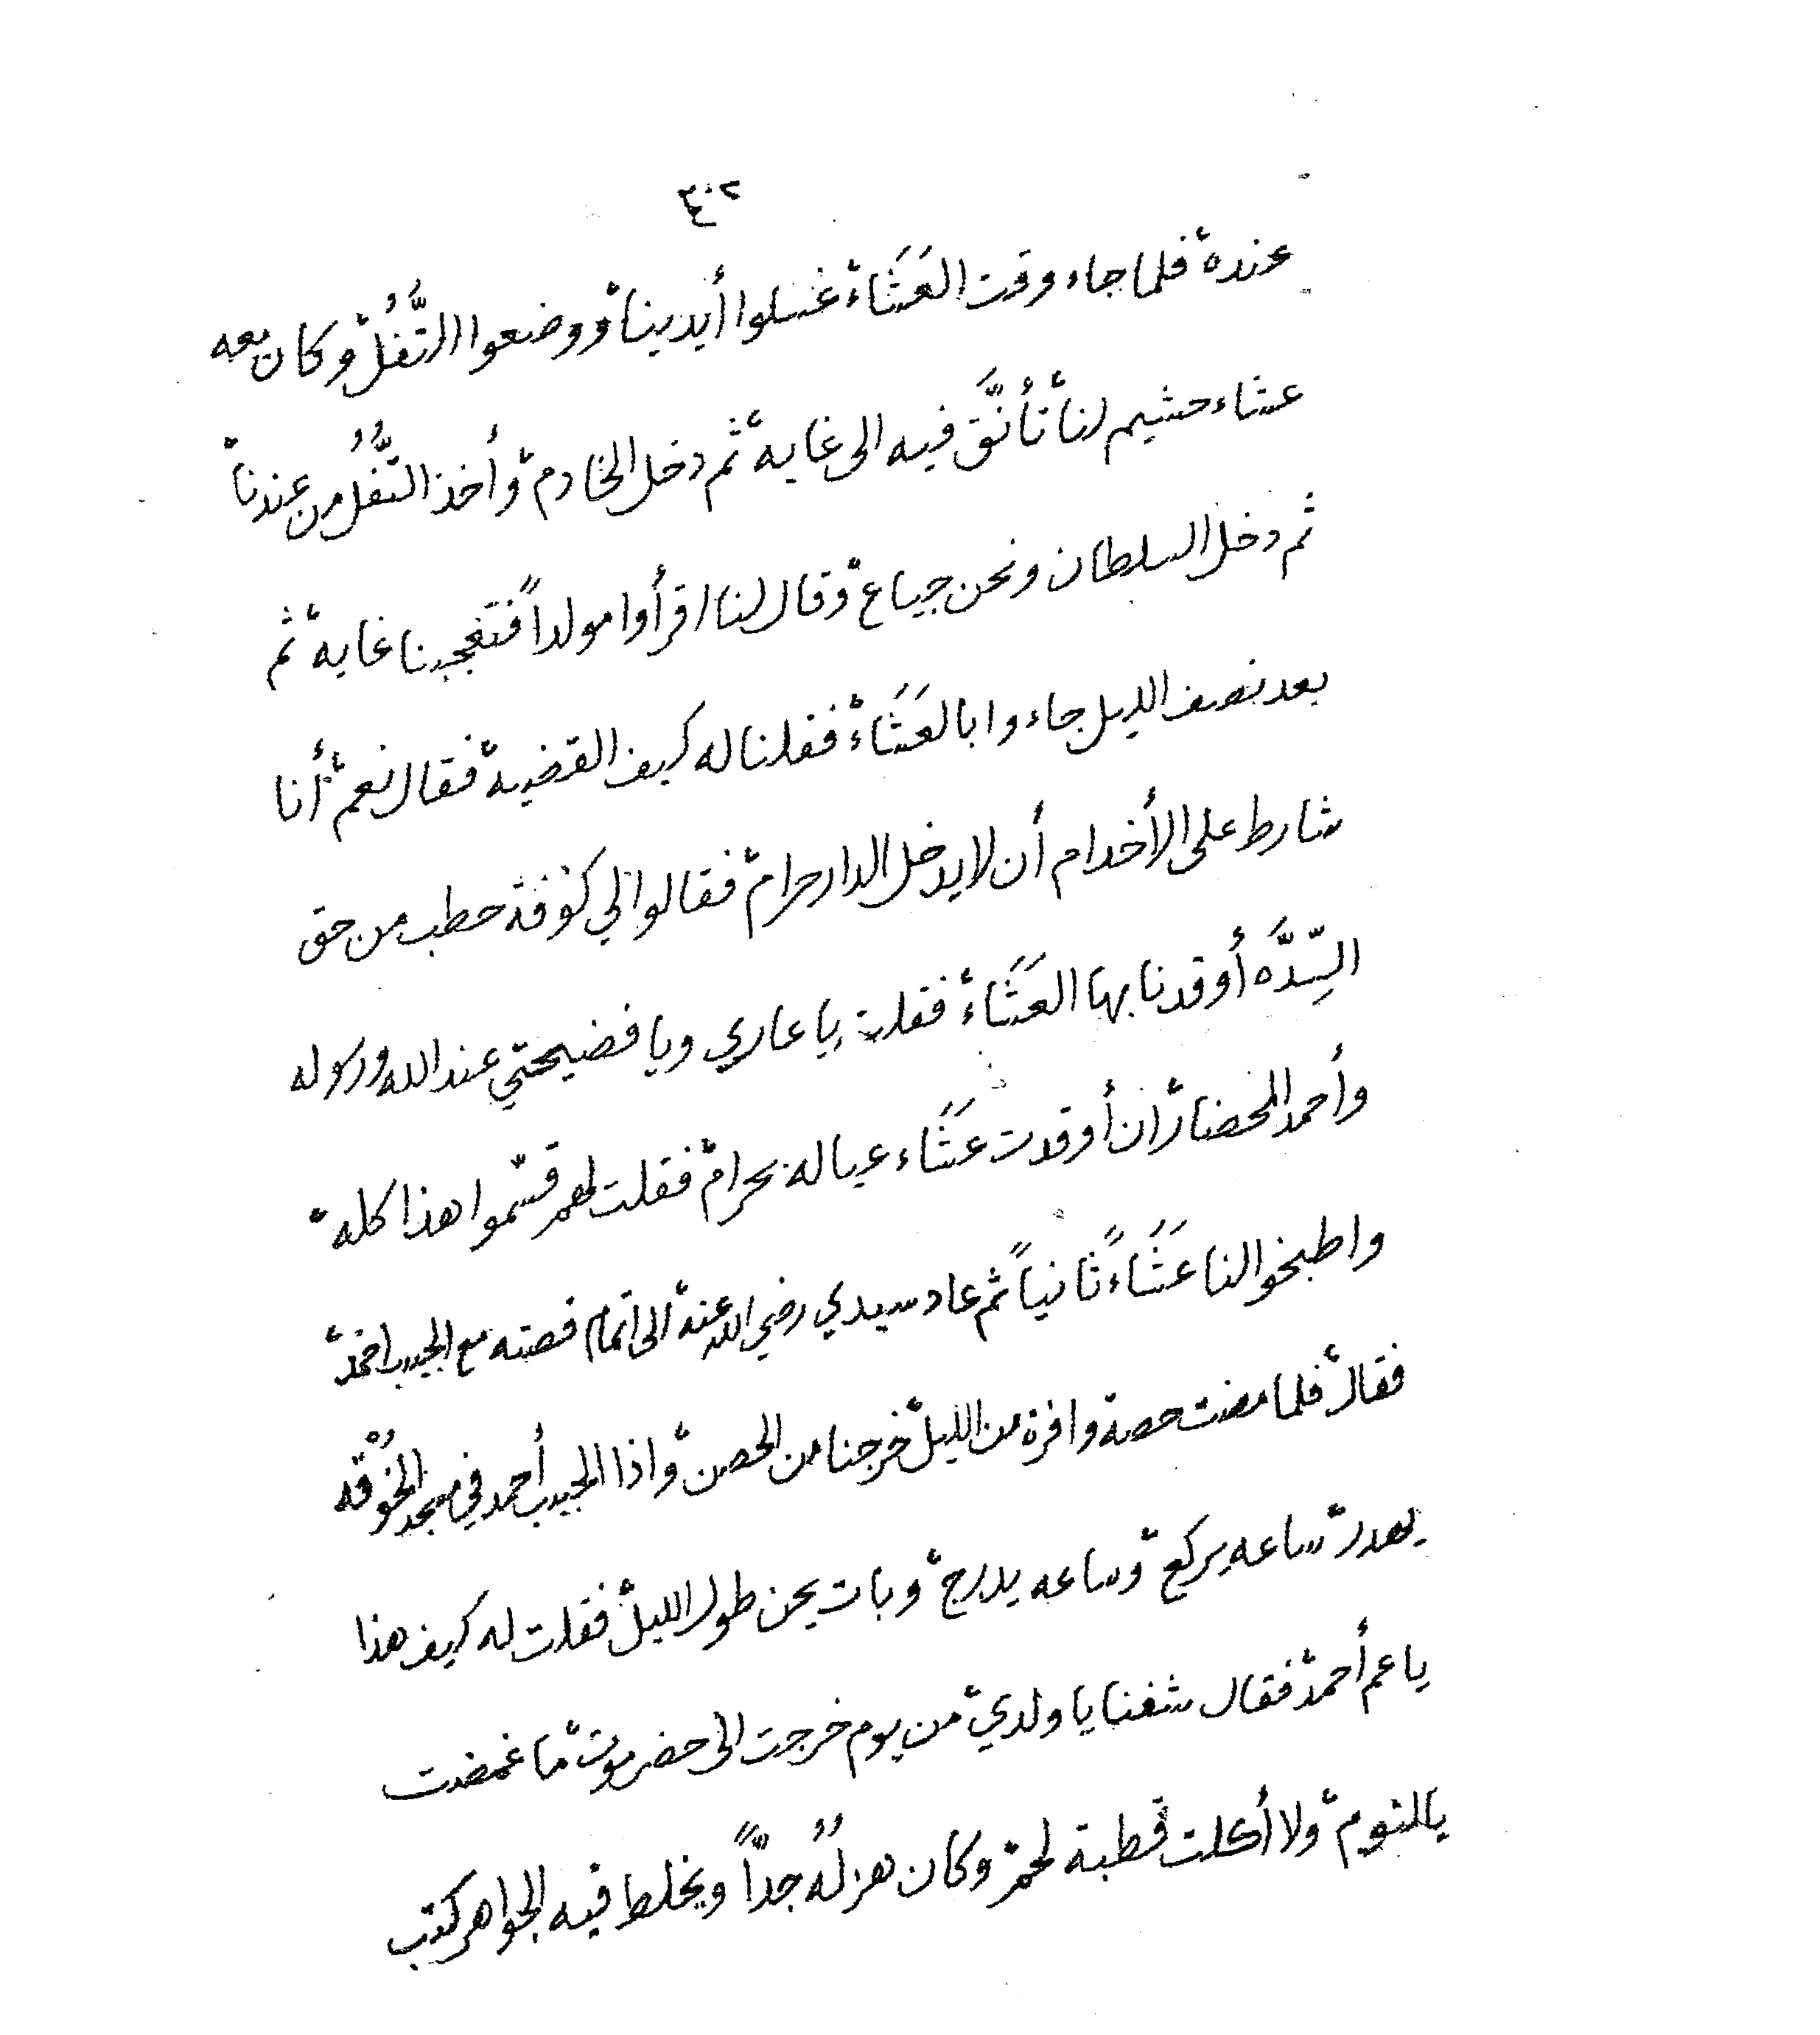 ٤٠٢
عنده فلما جاء وقت العَشَاء غسلوا أيدينا ووضعوا التُّفُل وكان معه
عشاء حشيم لنا تأنَّق فيه الى غايه ثم دخل الخادم وأخذ التُّفُل من عندنا
ثم دخل السلطان ونحن جياع وقال لنا اقرأوا مولداً فتعجبنا غايه ثم
بعد نصف الليل جاءوا بالعَشَاء فقلنا له كيف القضيه فقال نعم أنا
شارط على الأخدام أن لا يدخل الدار حرام فقالوا لي كوفة حطب من حق
السِّدَّه أوقدنا بها العَشَاء فقلت يا عاري ويا فضيحتي عند الله ورسوله
وأحمد المحضار ان أوقدت عَشَاء عياله بحرام فقلت لهم قسّموا هذا كله
واطبخوا لنا عَشَاءً ثانياً ثم عاد سيدي رضي الله عنه الى اتمام قصته مع الحبيب احمد
فقال فلما مضت حصة وافرة من الليل خرجنا من الحصن واذا الحبيب أحمد في مسجد الخَوْقه
يهدر ساعه يركع وساعه يدرج وبات يحن طول الليل فقلت له كيف هذا
يا عم أحمد فقال شفنا يا ولدي من يوم خرجت الى حضرموت ما غمضت
بالنوم ولا أكلت قطبة لحم وكان هزلُهُ جدّاً ويخلط فيه الجواهر كتب